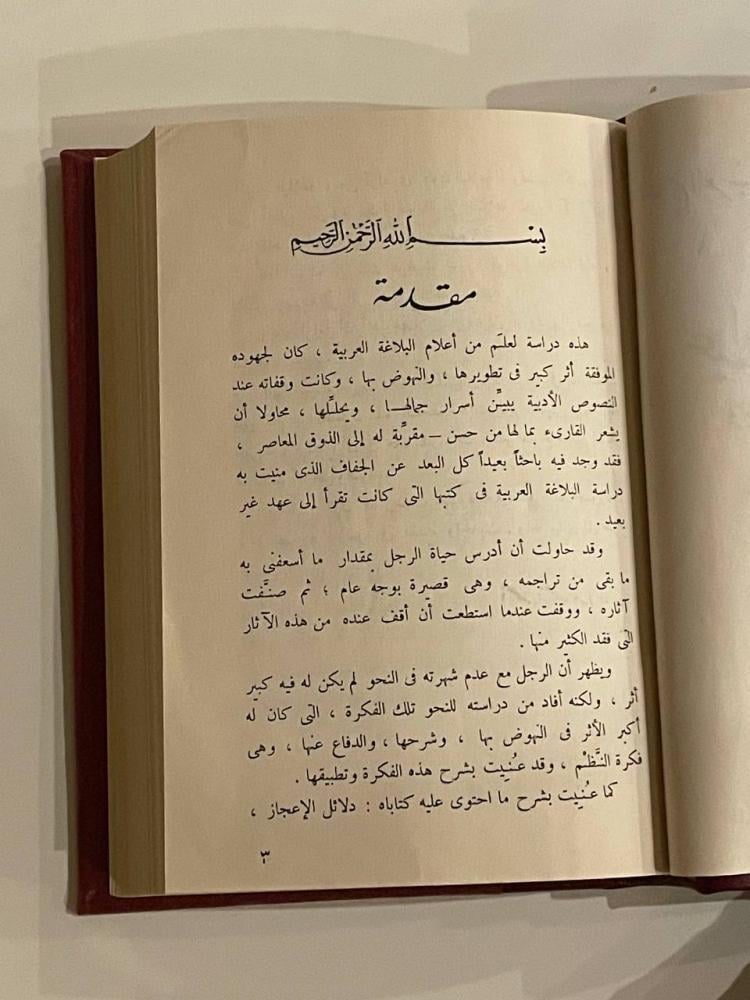 بسم الله الرحمن الرحيم
مقدمة
هذه دراسة لعلَم من أعلام البلاغة العربية ، كان لجهوده
الموفقة أثر كبير فى تطويرها ، والنهوض بها ، وكانت وقفاته عند
النصوص الأدبية يبيِّن أسرار جمالهـا ، ويحلِّلها ، محاولا أن
يشعر القارىء بما لها من حسن – مقرِّبة له إلى الذوق المعاصر ،
فقد وجد فيه باحثاً بعيداً كل البعد عن الجفاف الذى منيت به
دراسة البلاغة العربية فى كتبها التى كانت تقرأ إلى عهد غير
بعيد .
وقد حاولت أن أدرس حياة الرجل بمقدار ما أسعفنى به
ما بقى من تراجمه ، وهى قصيرة بوجه عام ؛ ثم صنَّفت
آثاره ، ووقفت عندما استطعت أن أقف عنده من هذه الآثار
التى فقد الكثير منها .
ويظهر أن الرجل مع عدم شهرته فى النحو لم يكن له فيه كبير
أثر ، ولكنه أفاد من دراسته للنحو تلك الفكرة ، التى كان له
أكبر الأثر فى النهوض بها ، وشرحها ، والدفاع عنها ، وهى
فكرة النَّظْم ، وقد عُنيت بشرح هذه الفكرة وتطبيقها .
كما عُنيت بشرح ما احتوى عليه كتاباه : دلائل الإعجاز ،
٣